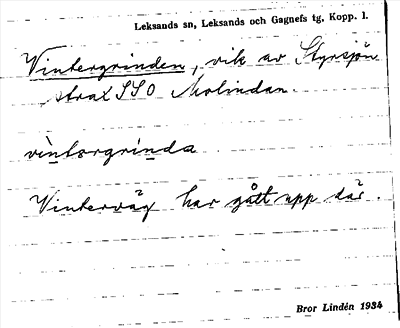 Leksands sn, Leksands och Gagnefs tg, Kopp. l.
Vintergrinden, vik av Styrsjön
strax SSO Molindan.
vìntərgrìnda
Winterväg har gått upp där.
Bror Lindén 1934